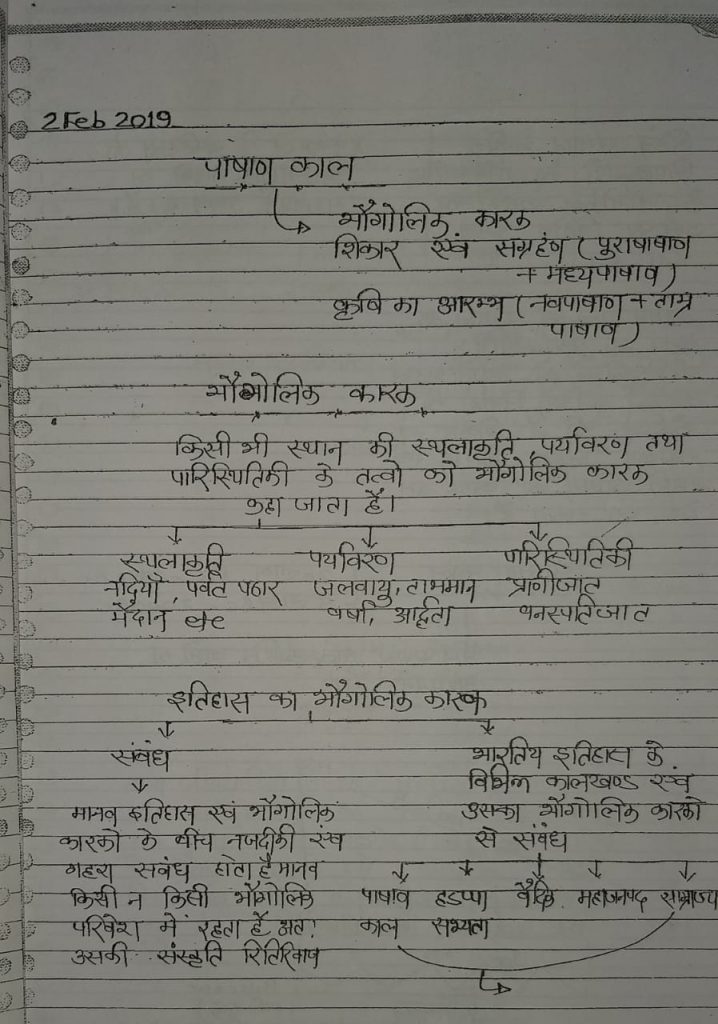 2 Feb 2019
पाषाण काल
भौगोलिक कारक
शिकार एवं सग्रहंण (पुरापाषाण
+ मध्यपाषाव)
कृषि का आरम्भ (नवपाषाण + ताम्र
पाषाव)
भौगोलिक कारक
किसी भी स्थान की स्थलाकृति, पर्यावरण तथा
पारिस्थितिकी के तत्वो को भौगोलिक कारक
कहा जाता हैं।
स्थलाकृति पर्यावरण पारिस्थितिकी
नदियाँ, पर्वत पठार जलवायु, तापमान प्राणीजात
मैदान etc वर्षा, आर्द्रता वनस्पतिजात
इतिहास का भौगोलिक कारक
संबंध भारतिय इतिहास के
विभिन्न कालखण्ड एवं
मानव इतिहास एवं भौगोलिक उसका भौगोलिक कारको
कारको के बीच नजदीकी एंव से संबंध
गहरा सबंध होता है मानव
किसी न किसी भौगोलिक पाषाव हडप्पा वैदिक महाजनपद साम्राज्य
परिवेश में रहता है अत: काल सभ्यता
उसकी संस्कृति रितिरिवाष